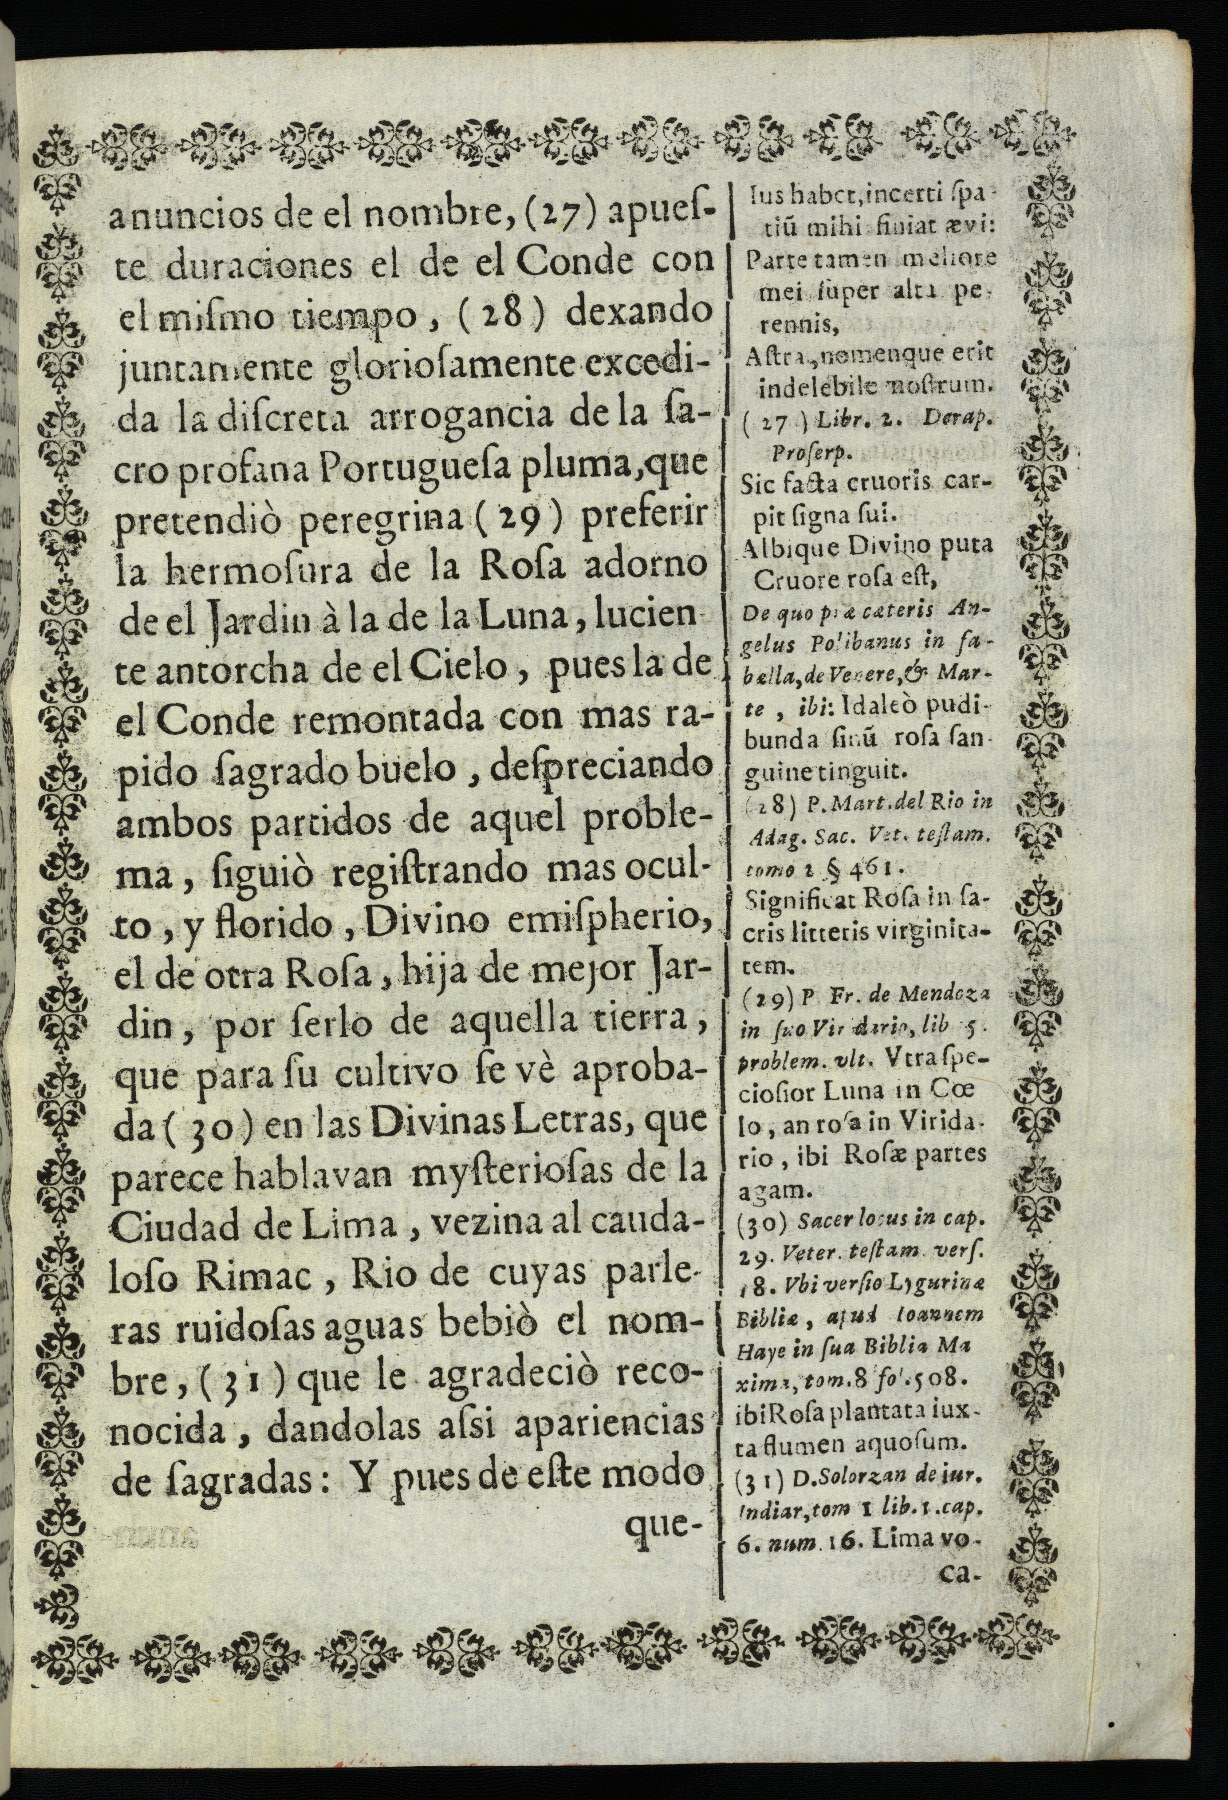 anuncios de el nombre, (27) apueſ-
te duraciones el de el Conde con
el miſmo tiempo, (28) dexando
juntamente glorioſamente excedi-
da la diſcreta arrogancia de la ſa-
cro profana Portugueſa pluma, que
pretendiò peregrina (29) preferir
la hermoſura de la Roſa adorno
de el Jardin à la de la Luna, lucien
te antorcha de el Cielo, pues la de
el Conde remontada con mas ra-
pido ſagrado buelo, deſpreciando
ambos partidos de aquel proble-
ma, ſiguiò regiſtrando mas ocul-
to, y florido, Divino emiſpherio,
el de otra Roſa, hija de mejor Jar-
din, por ſerlo de aquella tierra,
que para ſu cultivo ſe vè aproba-
da (30) en las Divinas Letras, que
parece hablavan myſterioſas de la
Ciudad de Lima, vezina al cauda-
loſo Rimac, Rio de cuyas parle-
ras ruidoſas aguas bebiò el nom-
bre, (31) que le agradeciò reco-
nocida, dandolas aſsi apariencias
de ſagradas: Y pues de eſte modo
que-
Ius habet, incerti ſpa-
tiũ mihi finiat ævi:
Parte tamen meliore
mei ſuper alta pe-
rennis,
Aſtra, nomenque erit
indelebile noſtrum.
(27) Libr. 2. De rap.
Proſerp.
Sic facta cruoris car-
pit ſigna ſui.
Albique Divino puta
Cruore roſa eſt,
De quo præ cæteris An-
gelus Polibanus in fa-
bælla, de Venere, & Mar-
te, ibi: Idaleò pudi-
bunda ſinũ roſa ſan-
guine tinguit.
(28) P. Mart. del Rio in
Adag. Sac. Vet. teſtam.
tomo 2 § 461.
Significat Roſa in ſa-
cris litteris virginita-
tem.
(29) P Fr. de Mendoza
in ſuo Viridario, lib 5.
problem. vlt. Vtra ſpe-
cioſior Luna in Cœ
lo, an roſa in Virida-
rio, ibi Roſæ partes
agam.
(30) Sacer locus in cap.
29. Veter. teſtam. verſ.
18. Vbi verſio Lygurinæ
Bibliæ, apud Ioannem
Haye in ſua Biblia Ma
xima, tom. 8 fol. 508.
ibi Roſa plantata iux-
ta flumen aquoſum.
(31) D. Solorzan de iur.
Indiar, tom 1 lib. 1. cap.
6. num. 16. Lima vo-
ca-